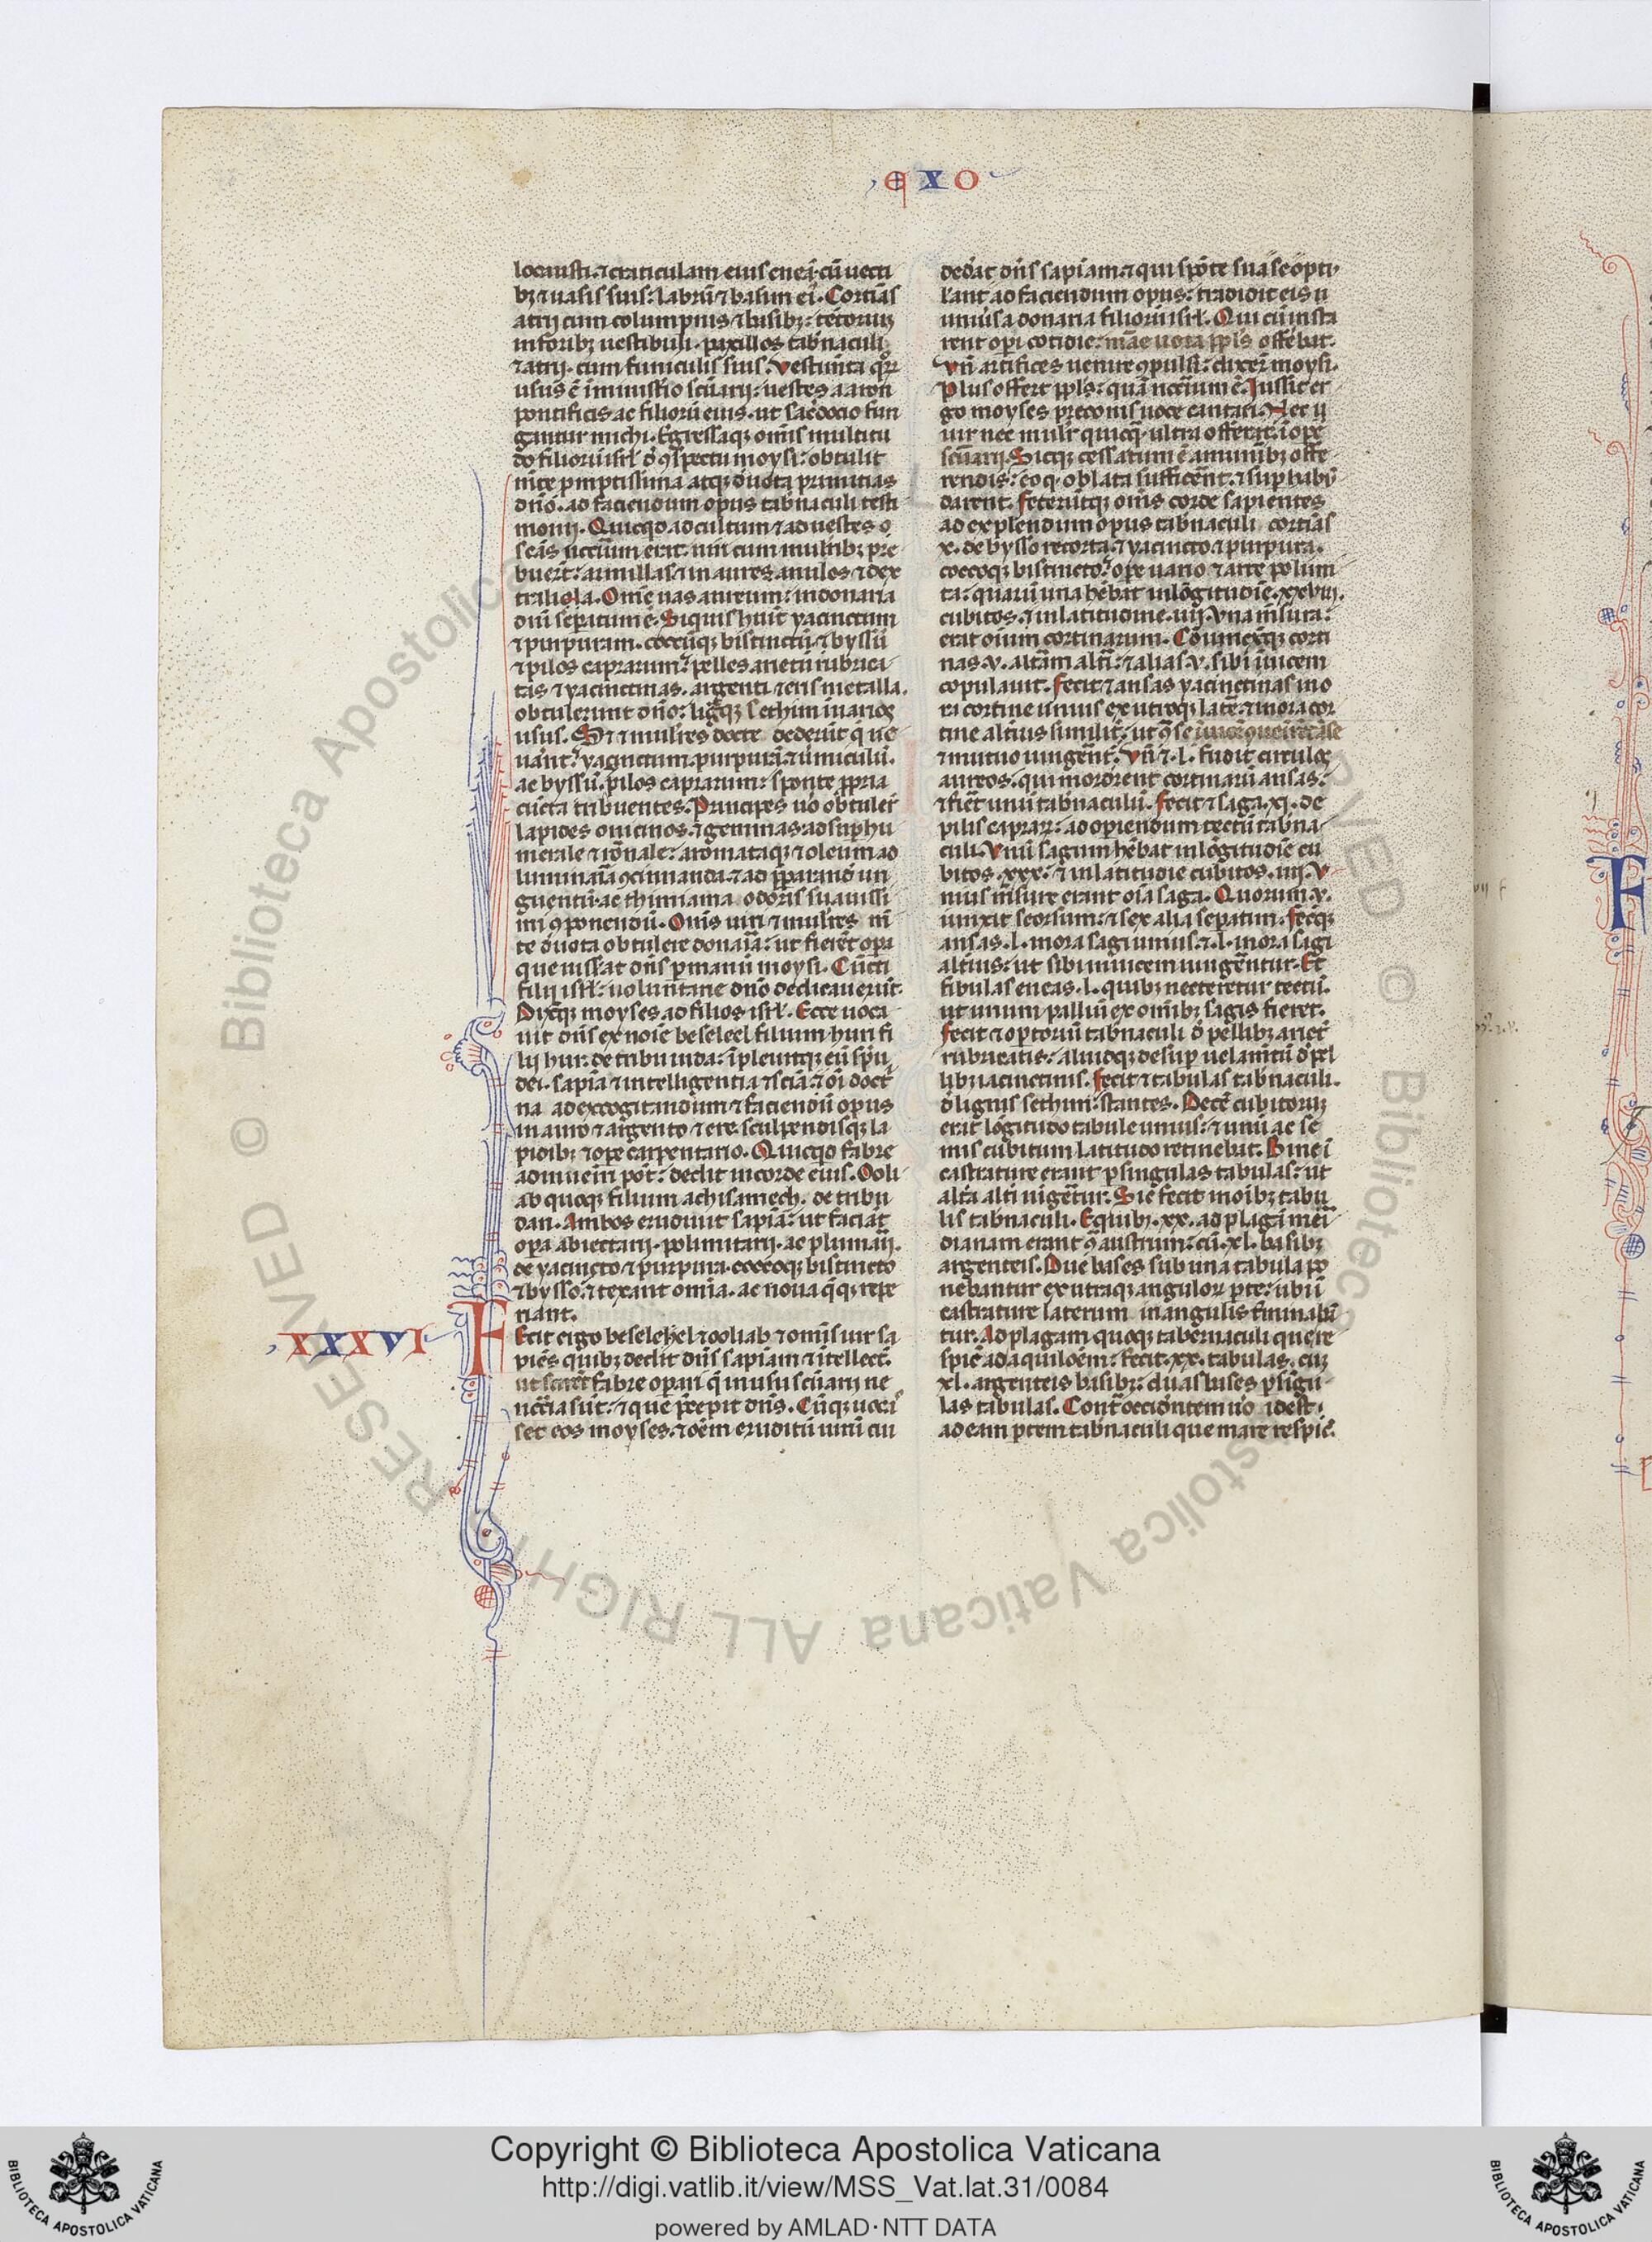 EXO
locausti. ⁊ craticulam eius eneā. cū uecti
bꝫ ⁊ uasis suis: labrū ⁊ basim ei᷒. Cortīas
atrij cum columpnis ⁊ basibꝫ: tētorium
in foribꝫ uestibuli. paxillos tab̄naculi
⁊ atrij. cum funiculis suis. Vestim̄ta q̄ꝝ
usus ē ī minist̄io sc̄uarij: uestes aaron
pontificis ac filioꝝ eius. ut sac̄docio fun
gantur michi. Egressaqꝫ om̄is multitu
do filioꝝ isrl̄ d̄ ꝯspectu moysi: obtulit
m̄te pmptissima atqꝫ d̄uota primitias
dn̄o. ad faciendum opus tab̄naculi testi
monij. Quicqd ad cultum ⁊ ad uestes
sc̄as nccīum erat. uiri cum mulīibꝫ pre
buer̄t: armillas ⁊ inaures. anulos ⁊ dex
tralia. Om̄e uas aureum: in donaria
dn̄i sep̄atum ē. Siquis h̄uit yacinctum
⁊ purpuram. coccūqꝫ bistinctū. ⁊ byssū
⁊ pilos caprarum. pelles arietū rubrica
tas ⁊ yacinctinas. argenti ⁊ eris metalla.
obtulerunt dn̄o: lignaqꝫ sethim in uarios
usus. S; ⁊ mulīes docte dederūt q̄ ne
uāt: yacinctum. purpurā. ⁊ ūmiculū.
ac byssū. pilos caprarum: sponte ꝓpria
cūcta tribuentes. Principes u̇o obtuler̄
lapides onicinos. ⁊ gemmas. ad suphu
merale ⁊ rōnale: aromataqꝫ ⁊ oleum ad
luminaria ꝯcinnanda. ⁊ ad p̄parand̄ un
guentū. ac thimiama odoris suauissi
mi ꝯponendū. Om̄s uiri ⁊ mulīes m̄
te d̄uota obtulere donaria: ut fierēt opa
que iusserat dn̄s p manū moysi. Cūcti
filij isrl̄: uoluntarie dn̄o dedicauer̄t.
Dixitqꝫ moyses ad filios isrl̄. Ecce uoca
uit dn̄s ex noīe beseleel filium huri fi
lij hur. de tribu iuda: īpleuitqꝫ eū sp̄u
dei. sapīa ⁊ intelligentia ⁊ sc̄ia. ⁊ oī doct̄
na ad excogitandum ⁊ faciendū opus
in auro ⁊ argento ⁊ ere. sculpendisqꝫ la
pidibꝫ ⁊ ope carpentario. Quicqd fabre
adinuenī pōt: dedit in corde eius. Ooli
ab quoqꝫ filium achisamech. de tribu
dan. Ambos erudiuit sapīa: ut faciāt
opa abietarij. polimitarij. ac plumarij.
de yacincto ⁊ purpura. coccoqꝫ bistincto
⁊ bysso. ⁊ texant omia. ac noua q̄qꝫ repe
riant.
XXXVI
Fecit ergo beselehel ⁊ ooliab ⁊ om̄is uir sa
piēs quibꝫ dedit dn̄s sapiam ⁊ ītellect̄.
ut scirēt fabre opari q̄ in usu sc̄uarij ne
ccīa sūt: ⁊ que p̄cepit dn̄s. Cūqꝫ uocas
set eos moyses. ⁊ oēm eruditū uirū cui
dederat dn̄s sapiam. ⁊ qui spōte sua se opti
lerant ad faciendum opus: tradidit eis u
niuersa donaria filiorū isrl̄. Qui cū insta
rent opi cotidie: mane uota ppl̄s offebat.
Vn̄ artifices uenire ꝯpulsi: dixer̄t moysi.
Plus offert ppl̄s: quā nccīum ē. Iussit er
go moyses preconis uoce cantari. Nec
uir nec mulīr quicq̄ ultra offerat ī ope
sc̄uarij. Sicqꝫ cessatum ē a munibꝫ offe
rendis: eo q̄ oblata sufficerēt. ⁊ suphabū
darent. Feceruntqꝫ om̄s corde sapientes
ad explendum opus tab̄naculi cortīas
x. de bysso retorta. ⁊ yacincto ⁊ purpura.
coccoqꝫ bistincto. ope uario ⁊ arte polimi
ta: quarū una h̄ebat in lōgitudīe. xxviij.
cubitos. ⁊ in latitudine. iiij. Vna m̄sura:
erat oīum cortinarum. Coniunxitqꝫ corti
nas. v. altām alt̄i. ⁊ alias. v. sibi inuicem
copulauit. Fecit ⁊ ansas yacinctinas in o
ra cortine unius ex utroqꝫ late. ⁊ in ora cor
tine alterius similit̄: ut ꝯtra se inuicem uenirēt āse
⁊ mutuo iungerent̄. Vn̄ ⁊. l. fudit circulos
aureos. qui morderent cortinarū ansas.
⁊ fieret unū tab̄naculū. Fecit ⁊ saga. xi. de
pilis capraꝝ: ad operiendum tectū tab̄na
culi. Vnū sagum h̄ebat in lōgitudīe cu
bitos. xxx. ⁊ in latitudīe cubitos. iiij. V
nius m̄sure erant oīa saga. Quorum. v.
iunxit seorsum: ⁊ sex alia separatim. Fecitqꝫ
ansas. l. in ora sagi unius. ⁊. l. in ora sagi
alterius: ut sibi inuicem iungerentur. Et
fibulas eneas. l. quibꝫ necteretur tectū.
ut unum palliū ex omībꝫ sagis fieret.
Fecit ⁊ optoriū tab̄naculi d̄ pellibꝫ ariet̄
rubricatis: aliudqꝫ desup uelamtū d̄ pel
libꝫ iacinctinis. Fecit ⁊ tabulas tab̄naculi.
d̄ lignis sethim: stantes. Decē cubitorum
erat lōgitudo tabule unius: ⁊ unū ac se
mis cubitum latitudo retinebat. Bine ī
castrature erant p singulas tabulas: ut
alt̄a alt̄i iūgeretur. Sic fecit ī oībꝫ tabu
lis tab̄naculi. E quibꝫ. xx. ad plagā meri
dianam erant ꝯ̄ austrum: cū. xl. basibꝫ
argenteis. Due bases sub una tabula po
nebantur ex utraqꝫ anguloꝝ pte: ubi
castrature laterum in angulis t̄minabā
tur. Ad plagam quoqꝫ tabernaculi que re
spicit ad aquilonem: fecit. xx. tabulas. cum
xl. argenteis basibꝫ: duas bases p singu
las tabulas. Cont̄ occidentem u̇o idest
ad eam ptem tab̄naculi que mare respic̄.
Copyright © Biblioteca Apostolica Vaticana
http://digi.vatlib.it/view/MSS_Vat.lat.31/0084
powered by AMLAD·NTT DATA